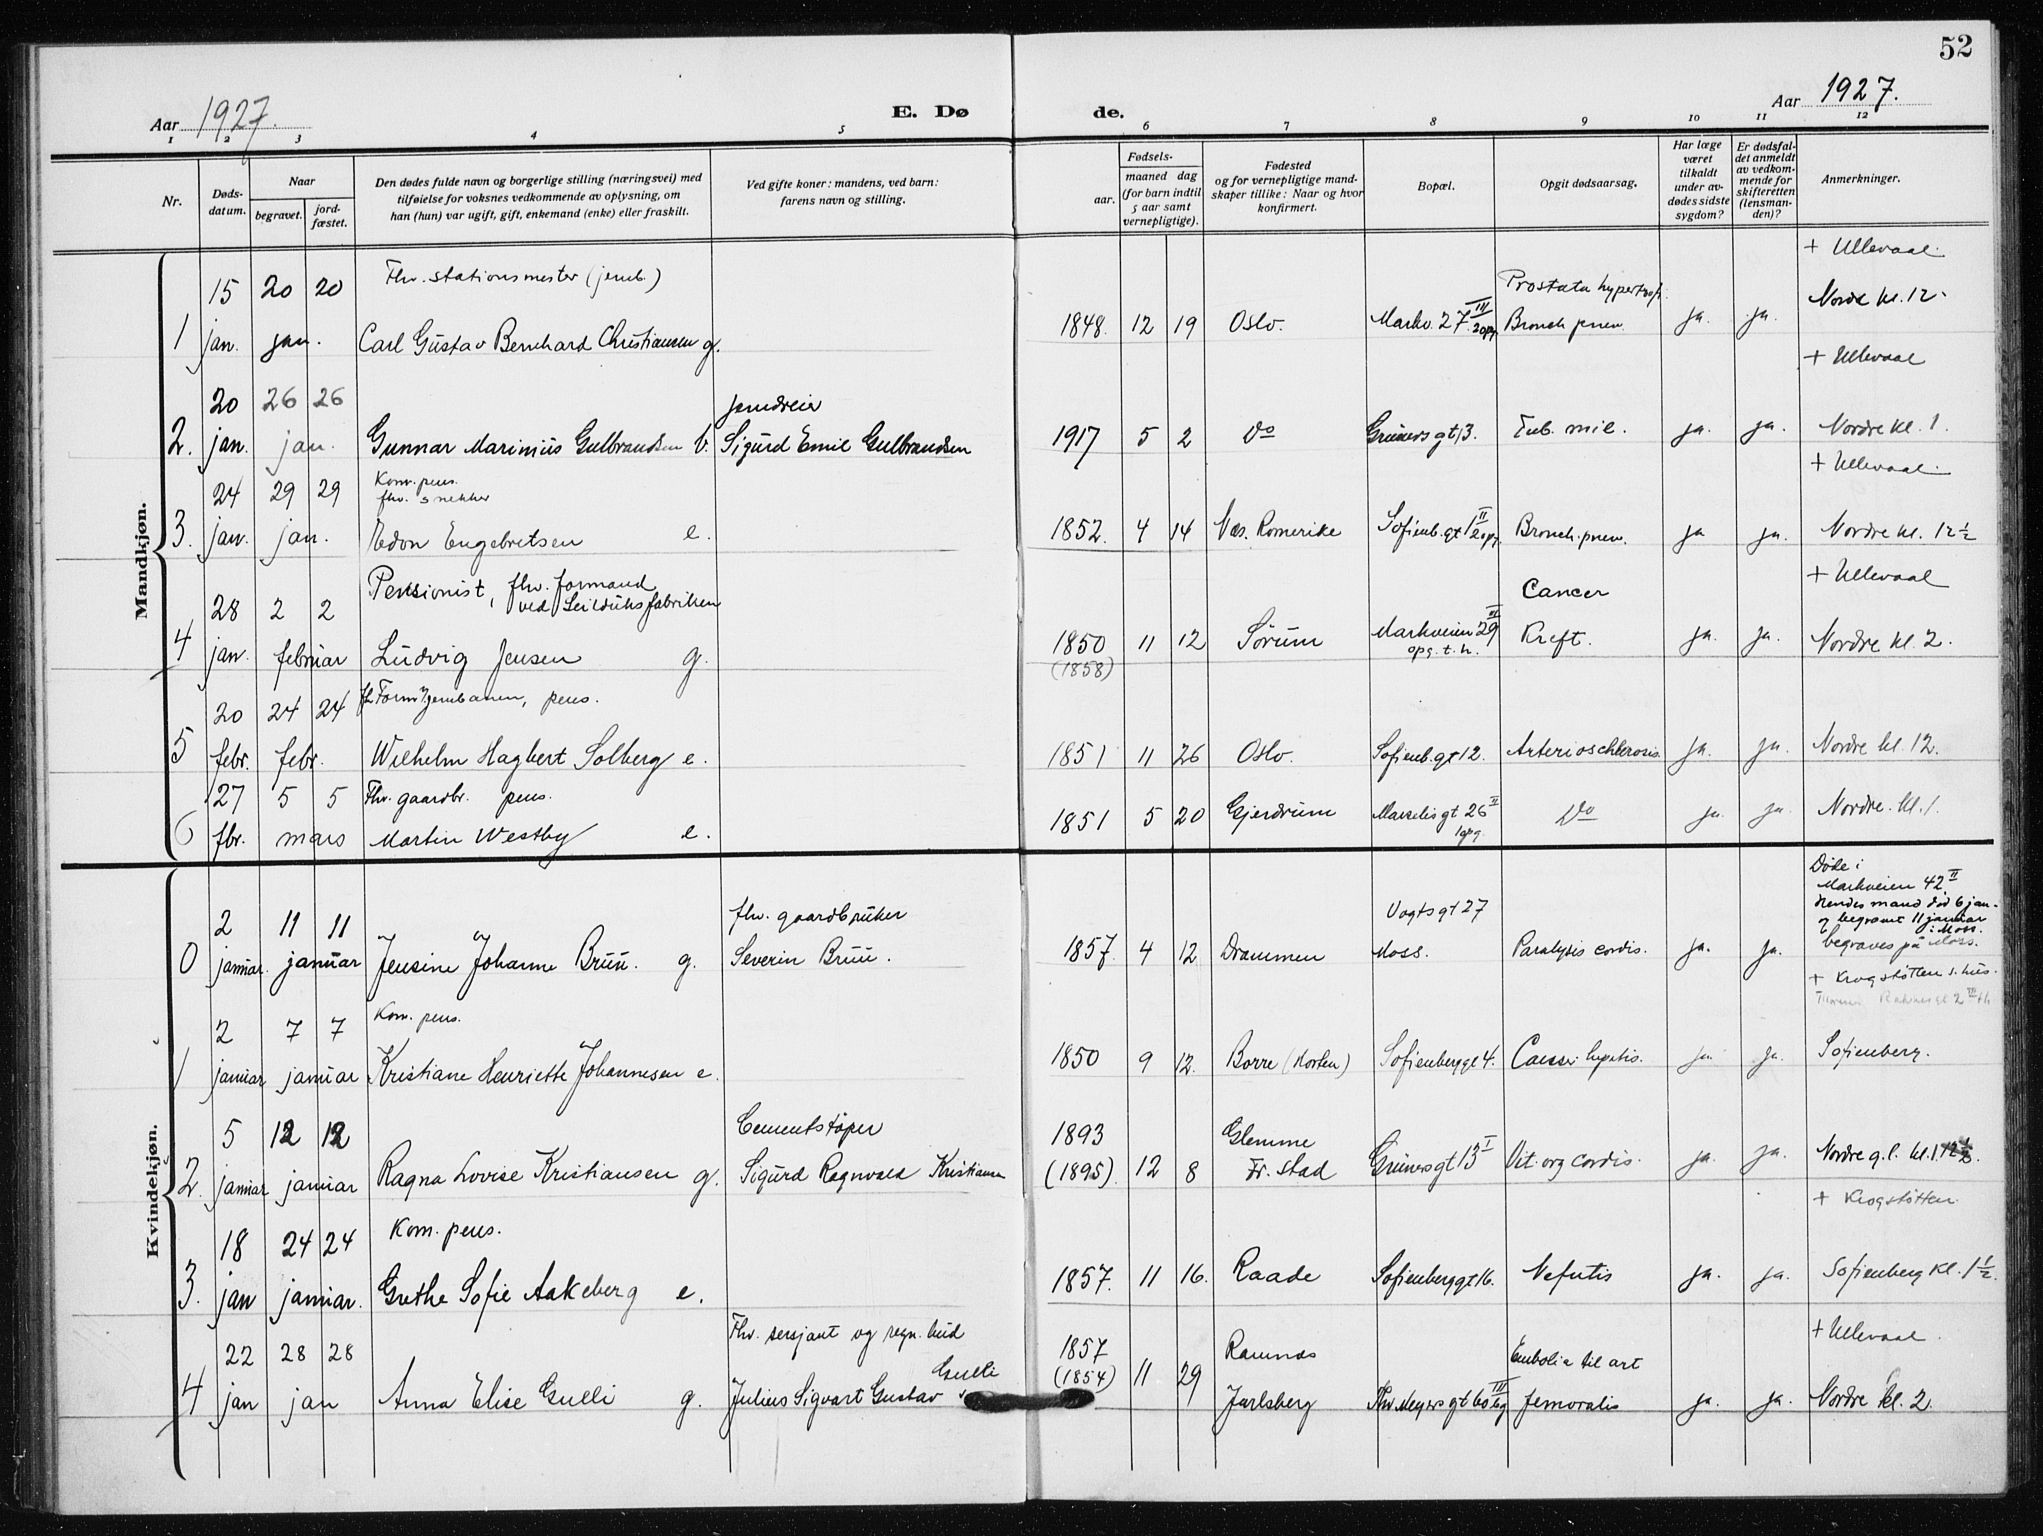 52
Aar 1927.
E. Dø
de.
Aar 1927.
1 2 3 4 5 6 7 8 9 10 11 12
Nr.
Døds-
datum.
Naar
begravet.
jord-
fæstet.
Den dødes fulde navn og borgerlige stilling (næringsvei) med
tilføielse for voksnes vedkommende av oplysning, om
han (hun) var ugift, gift, enkemand (enke) eller fraskilt.
Ved gifte koner: mandens, ved barn:
farens navn og stilling.
Fødsels-
aar.
maaned dag
(for barn indtil
5 aar samt
vernepligtige).
Fødested
og for vernepligtige mand-
skaper tillike: Naar og hvor
konfirmert.
Bopæl.
Opgit dødsaarsag.
Har læge
været
tilkaldt
under av-
dødes sidste
sygdom?
Er dødsfal-
det anmeldt
av vedkom-
mende for
skifteretten
(lensman-
den)?
Anmerkninger.
Mandkjøn.
+ Ullevaal.
15 20 20 Fhv. stationsmester (jernb.) Prostata hypertrof. Nordre kl. 12
1 jan. jan. Carl Gustav Bernhard Christiansen g. 1848. 12 19 Oslo. Markv. 27 III 2opg Bronch pnev. ja. ja.
+ Ullevaal
20 26 26 jerndreier
2. jan. jan. Gunnar Marinius Gulbrandsen b. Sigurd Emil Gulbrandsen 1917 5 2 Do Grünersgt 13. Tub. mil. ja. ja. Nordre kl. 1.
+ Ullevaal.
24 29 29 Kom. pens.
fhv. snekker
3. jan. jan. Edon Engebretsen e. 1852. 4 14 Næs. Romerike Sofienb.gt 1 II 2opg Bronch. pnev. ja ja. Nordre kl. 12½
+ Ullevaal
28 2 2 Pensionist, fhv. formand
ved Seilduksfabriken Cancer
4 jan. februar Ludvig Jensen g. 1850 11 12 Sørum Markveien 29 III
opg. t. h. Kreft. ja. ja. Nordre kl. 2.
(1858)
20 24 24 fh. Form. v/jernbanen, pens.
5 febr. febr. Wilhelm Hagbert Solberg e. 1851 11 26 Oslo. Sofienb.gt 12. Arterioschlerosis. ja. ja. Nordre kl. 12.
27 5 5 Fhv. gaardbr. pens.
6 fbr. mars Martin Westby e. 1851 5 20 Gjerdrum Marselisgt 26 II
1opg. Do ja. ja. Nordre. kl. 1.
Kvindekjøn.
Døde i
Markveien 42 II
Hendes mand død 6 jan.
og begravet 11 januar
i Moss.
begraves på Moss.
2 11 11 fhv. gaardbruker Vogtsgt 27
0 januar. januar Jensine Johanne Bruu. g. Severin Bruu. 1857. 4 12 Drammen Moss. Paralysis cordis. ja. ja.
+ Krogstøtten s. hus.
2 7 7 Kom. pens.
1 januar januar Kristiane Henriette Johannesen e. 1850 9 12. Borre (Horten) Sofienberggt 4. Cancer hepatis. ja. ja. Sofienberg.
5 12 12 Cementstøper 1893 Glemme
2. januar januar Ragna Lovise Kristiansen g. Sigurd Ragnvald Kristiansen (1895). 12 8 Fr. stad Grünersgt 13 I Vit. org cordis. ja. ja. Nordre g. l. kl. 1
+ Krogstøtten
18 24 24 Kom. pens.
3. jan januar. Grethe Sofie Aakeberg e. 1857. 11 16. Raade Sofienberggt 16. Nefritis ja. ja. Sofienberg kl. 1½.
+ Ullevaal.
22 28 28 Fhv. sersjant og regn. bud 1857 Ramnæs Embolia til art
4 jan jan Anna Elise Gulli g. Julius Sigvart Gustav Gulli (1854) 11 29 Jarlsberg Thv Meyersgt 60 III femoralis ja. ja. Nordre kl. 2.